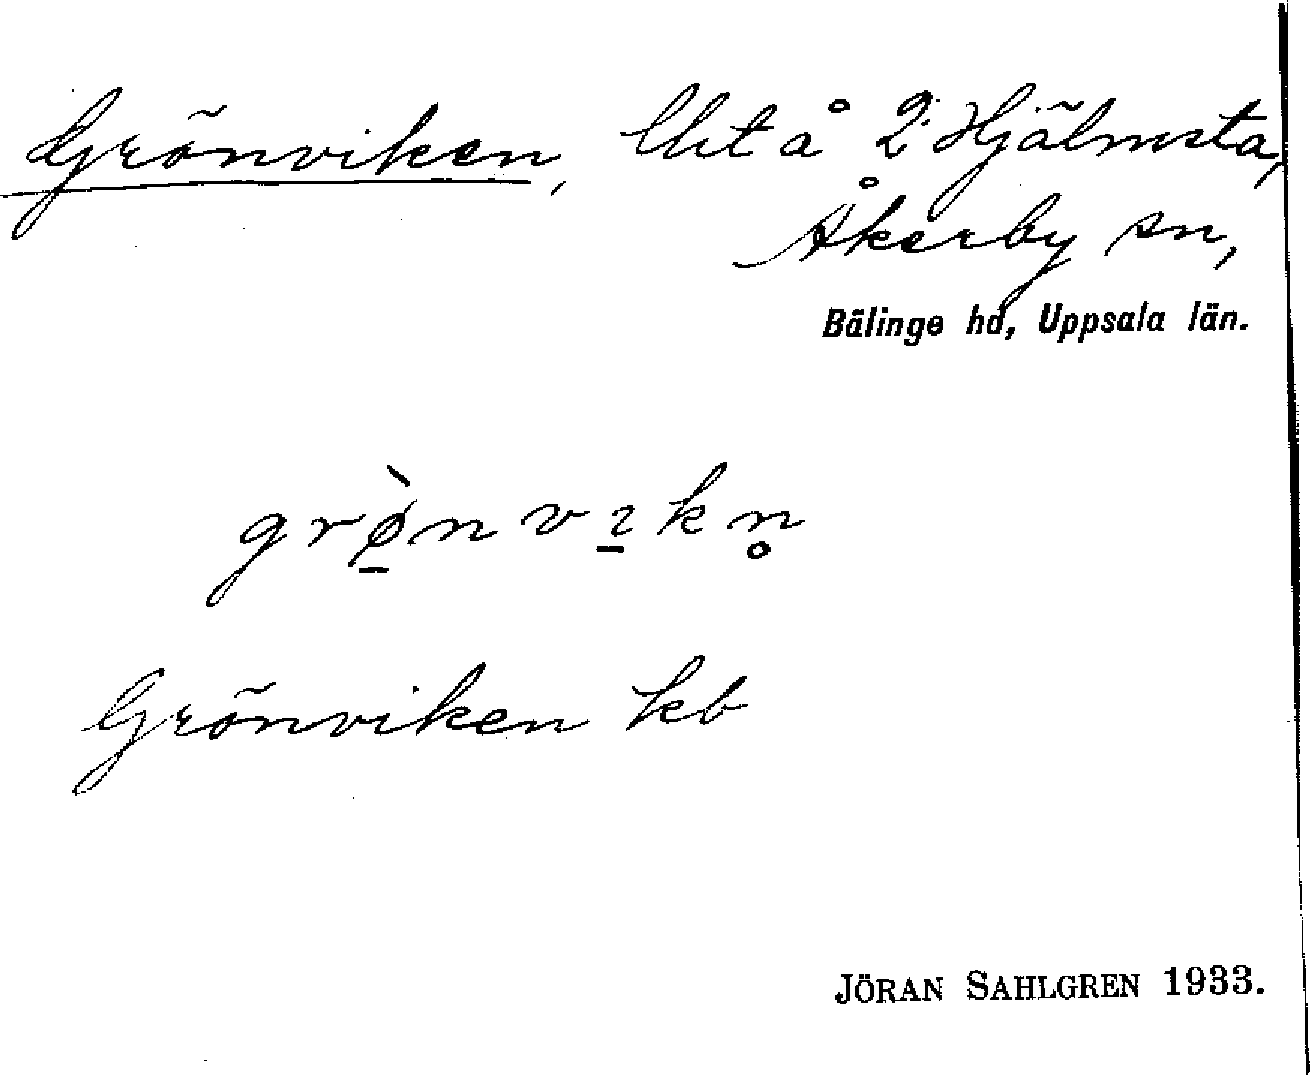 Grönviken, lht å 2 Hjälmsta,
Åkerby sn,
Bälinge hd, Uppsala län.
grø̠̀nvɩ̠kn̥
Grönviken kb
JÖRAN SAHLGREN 1933.